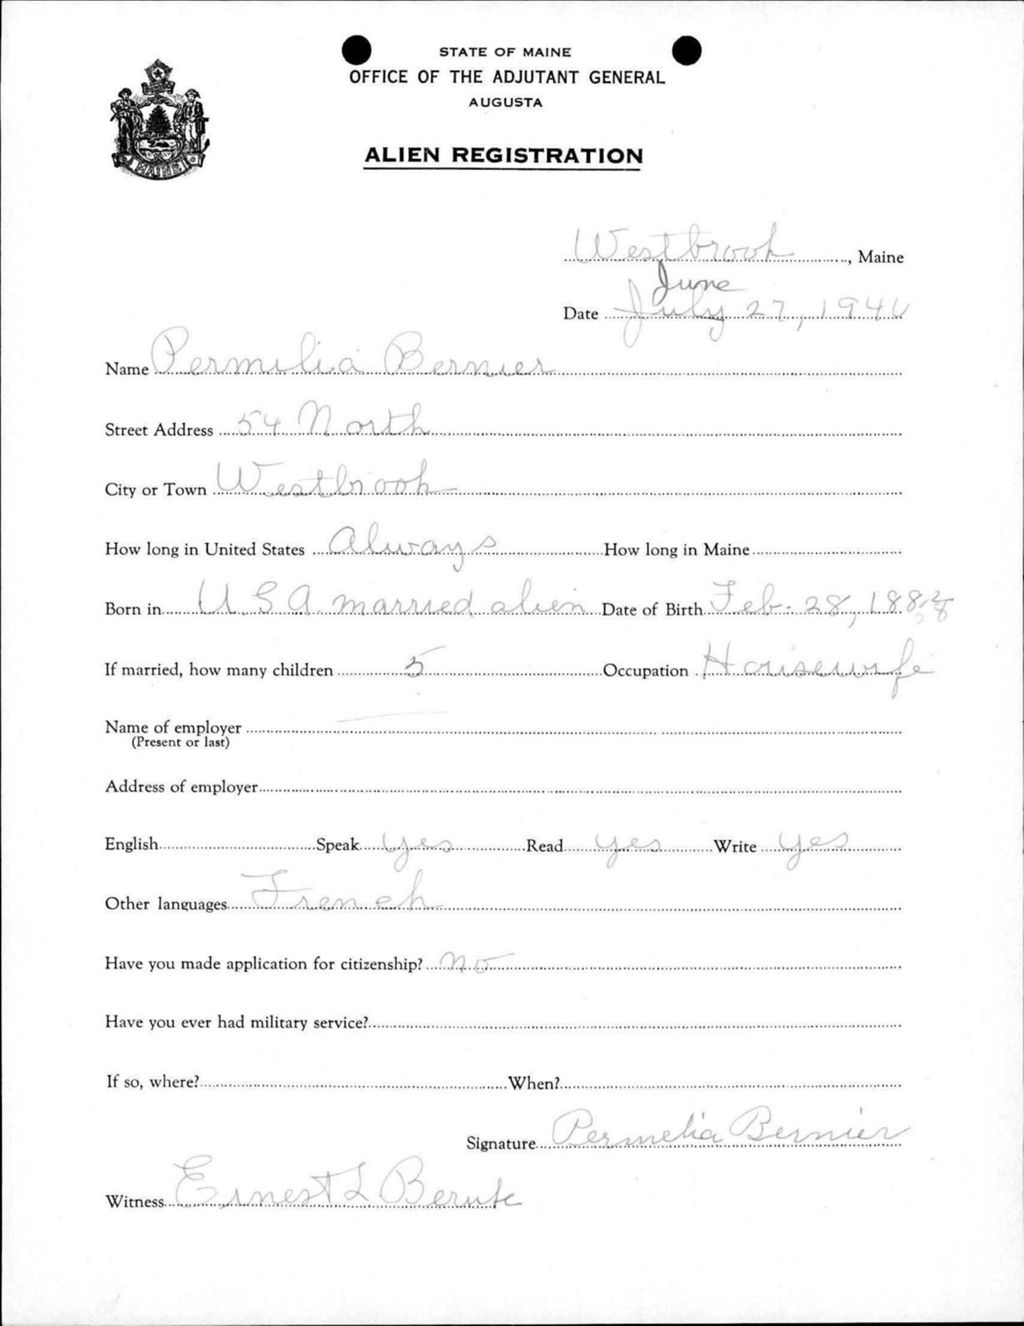 STATE OF MAINE
OFFICE OF THE ADJUTANT GENERAL
AUGUSTA
ALIEN REGISTRATION
Westbrook, Maine
June
Date July 27, 1940
Name Permilia Bernier
Street Address 54 North
City or Town Westbrook
How long in United States Always How long in Maine
Born in U S A married alien Date of Birth Feb. 28, 188
If married, how many children 5 Occupation Housewife
Name of employer
(Present or last)
Address of employer
English Speak yes Read yes Write yes
Other languages French
Have you made application for citizenship? No
Have you ever had military service?
If so, where? When?
Signature Permelia Bernier
Witness Ernest L